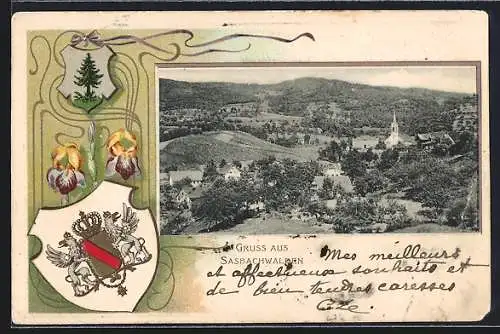 GRUSS AUS
SASBACHWALDEN
Mes meilleurs
et affectueux souhaits et
de bien tendres caresses